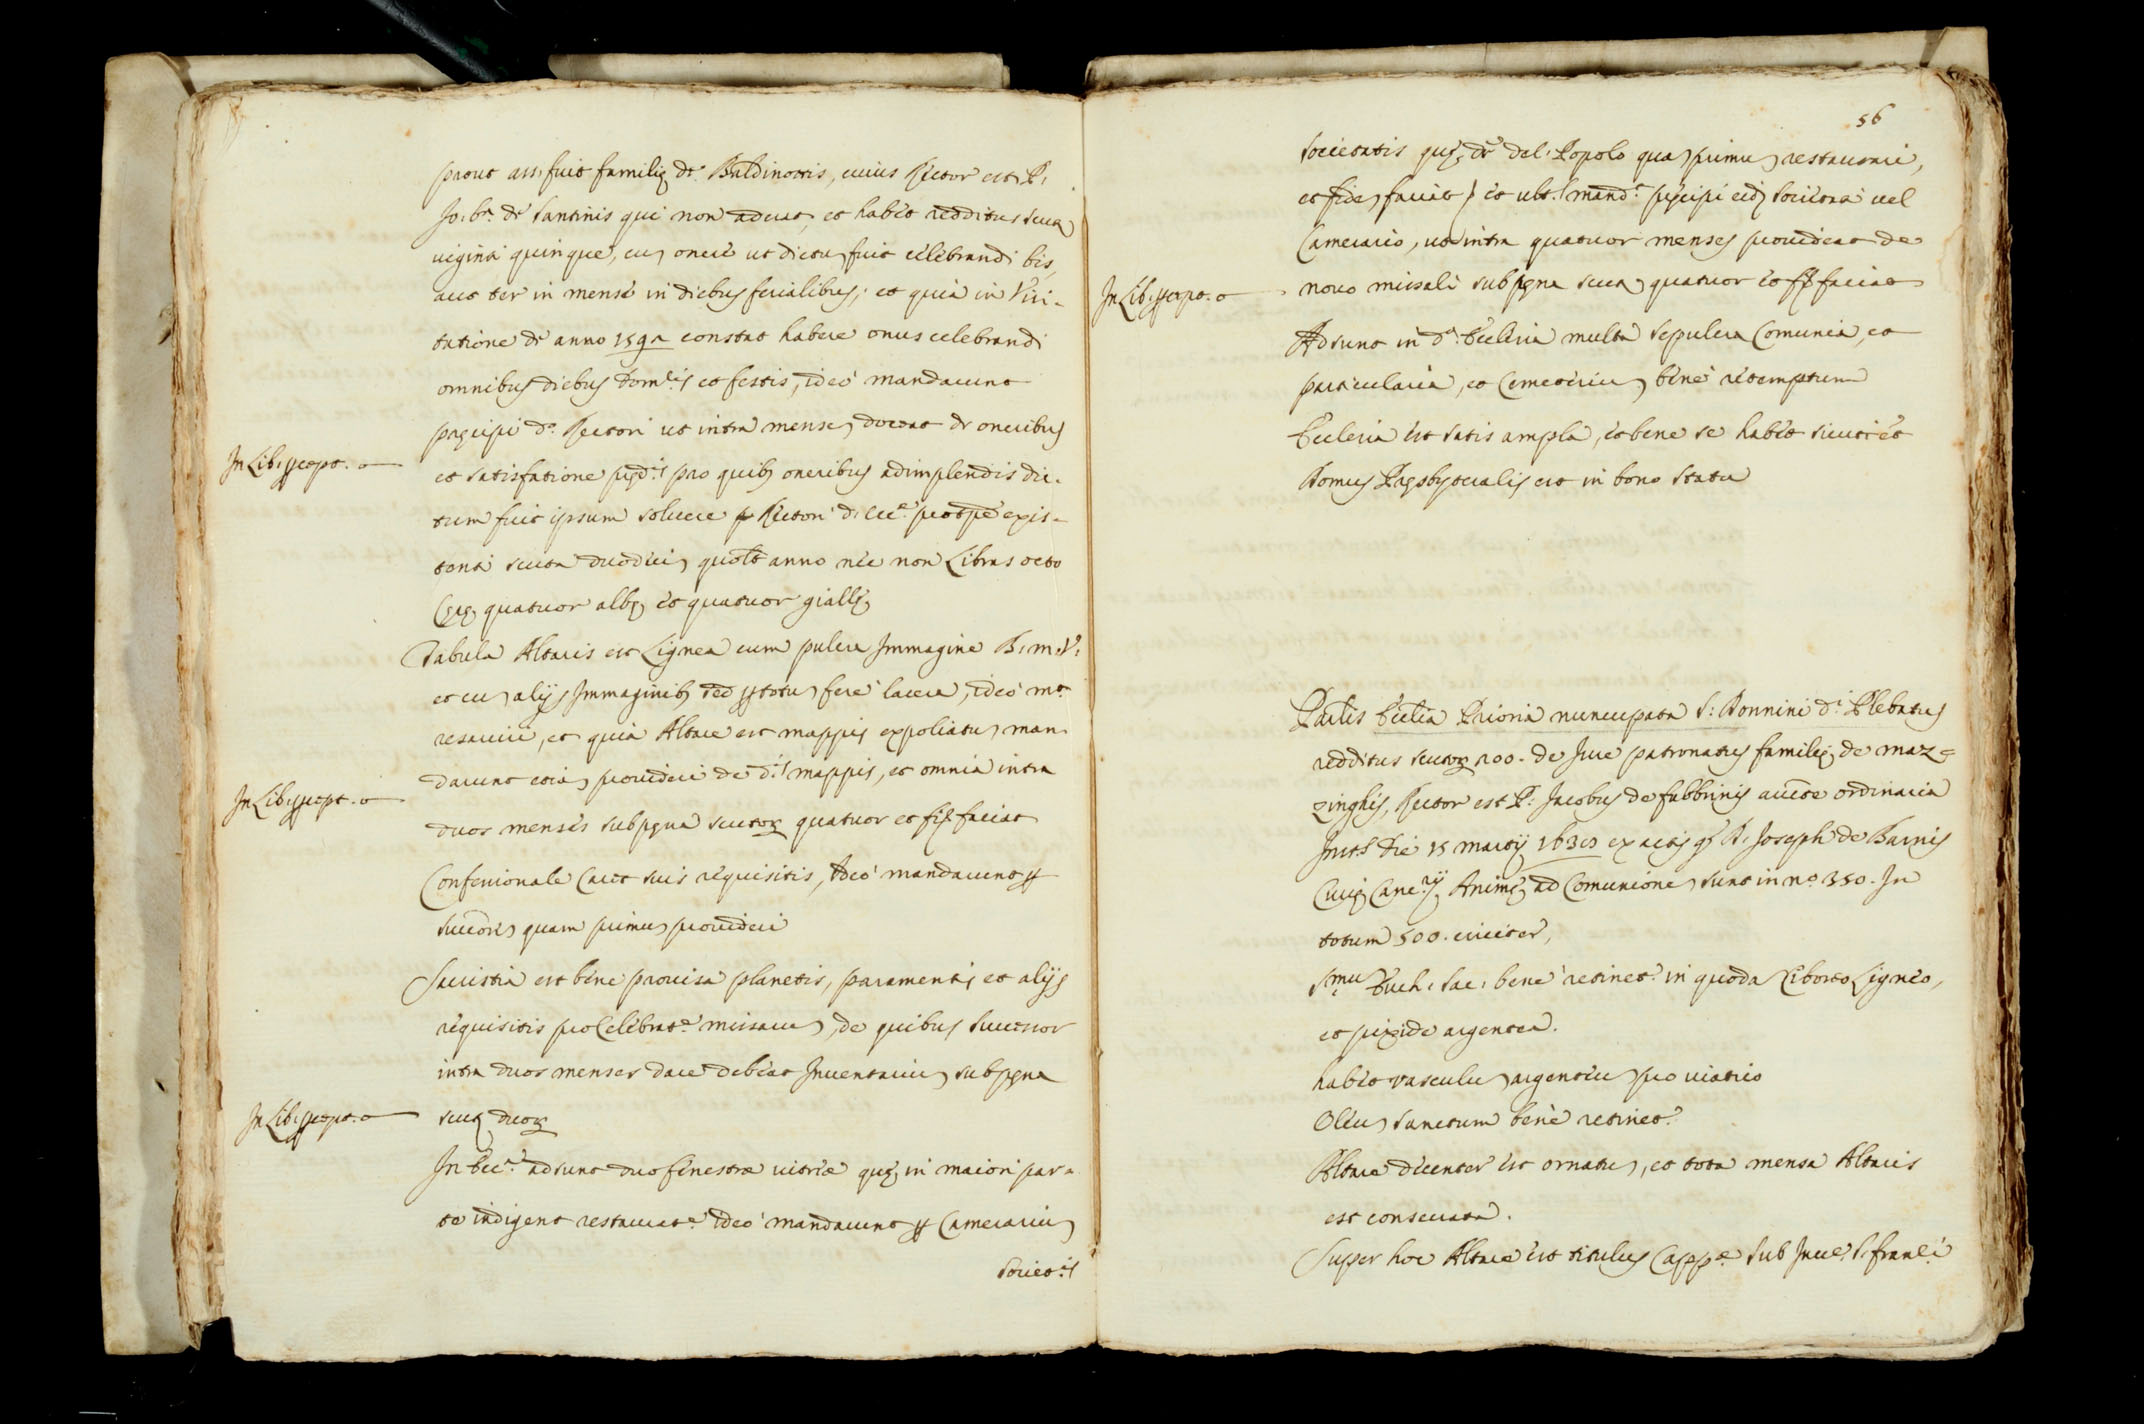 prout ass: fuit familię de Baldinottis, cuius Rector est P:
Jo: Ba. de Santinis qui non aderat, et habet redditus scuta
viginti quinque, cum onere ut dictum fuit celebrandi bis,
aut ter in mense in diebus ferialibus; et quia in Visi-
tatione de anno constat habere onus celebrandi
omnibus diebus Domcis et festis, ideò mandarunt
pręcipi do. Rectori ut intra mensem doceat de oneribus
In Lib: pcept.
et satisfatione pro quibus oneribus adimplendis dic-
tum fuit ipsum solvere Rectori d. Ecc. exis-
tenti scuta duodecim quolt anno nec non Libras octo
Cerę quatuor albę et quatuor giallę
Tabula Altaris est Lignea cum pulcra Immagine B: M: V:
et cum alijs Immaginibus sed totum ferè lacera, ideò mt.
resarciri, et quia Altare est mappis expoliatum man-
darunt etiam provideri de ds mappis, et omnia intra
In Lib: pcept.
duos menses sub pęna scutor quatuor et fid. faciat
Confessionale Caret suis requisitis, Ideò mandarunt p
successorem quam primum provideri
Sacristia est bene provisa planetis, paramentis et alijs
requisitis pro Celebrate. missarum, de quibus Successor
intra duos menses dare debeat Inventarium sub pęna
In Lib: pcept.
scut duor
In Ecca. adsunt duo fenestræ vitreæ quę in maiori par-
te indigent restaurate. ideò mandarunt p Camerarium
Societis
56
Societatis quę dr del Popolo quam primum restaurari,
et fidem faciat et ult. mandt. pręcipi eidem Societati vel
Camerario, ut intra quatuor menses provideat de
In Lib: pcept.
novo missali sub pęna scuta quatuor et faciat
Adsunt in da. Ecclesia multa sepulcra Comunia, et
particularia, et Cemeterium bene retemptum
Ecclesia est satis ampla, et bene se habet sicuti et
Domus Pręsbyterialis est in bono statu
Parlis Ecclia Prioria nuncupata S: Donnini di. Plebatus
redditus scutor 200. de Jure patronatus familię de Maz-
zinghis, Rector est P: Jacobus de fabbrinis aucte ordinaria
Inst. die 15 martij 1630 ex actis q. D. Joseph de Barnis
Curię Cancrij. Animę ad Comunionem sunt in no. 350. In
totum 500. circiter,
Smum Euch: Sac: bene retinet. in quodam Ciborio Ligneo,
et pixide argentea.
habet vasculum argenteum pro viatico
Oleum sanctum bene retinet.
Altare decenter est ornatum, et tota mensa Altaris
est consecrata.
Super hoc Altare est titulus Cappe. sub Invce. S. Franci